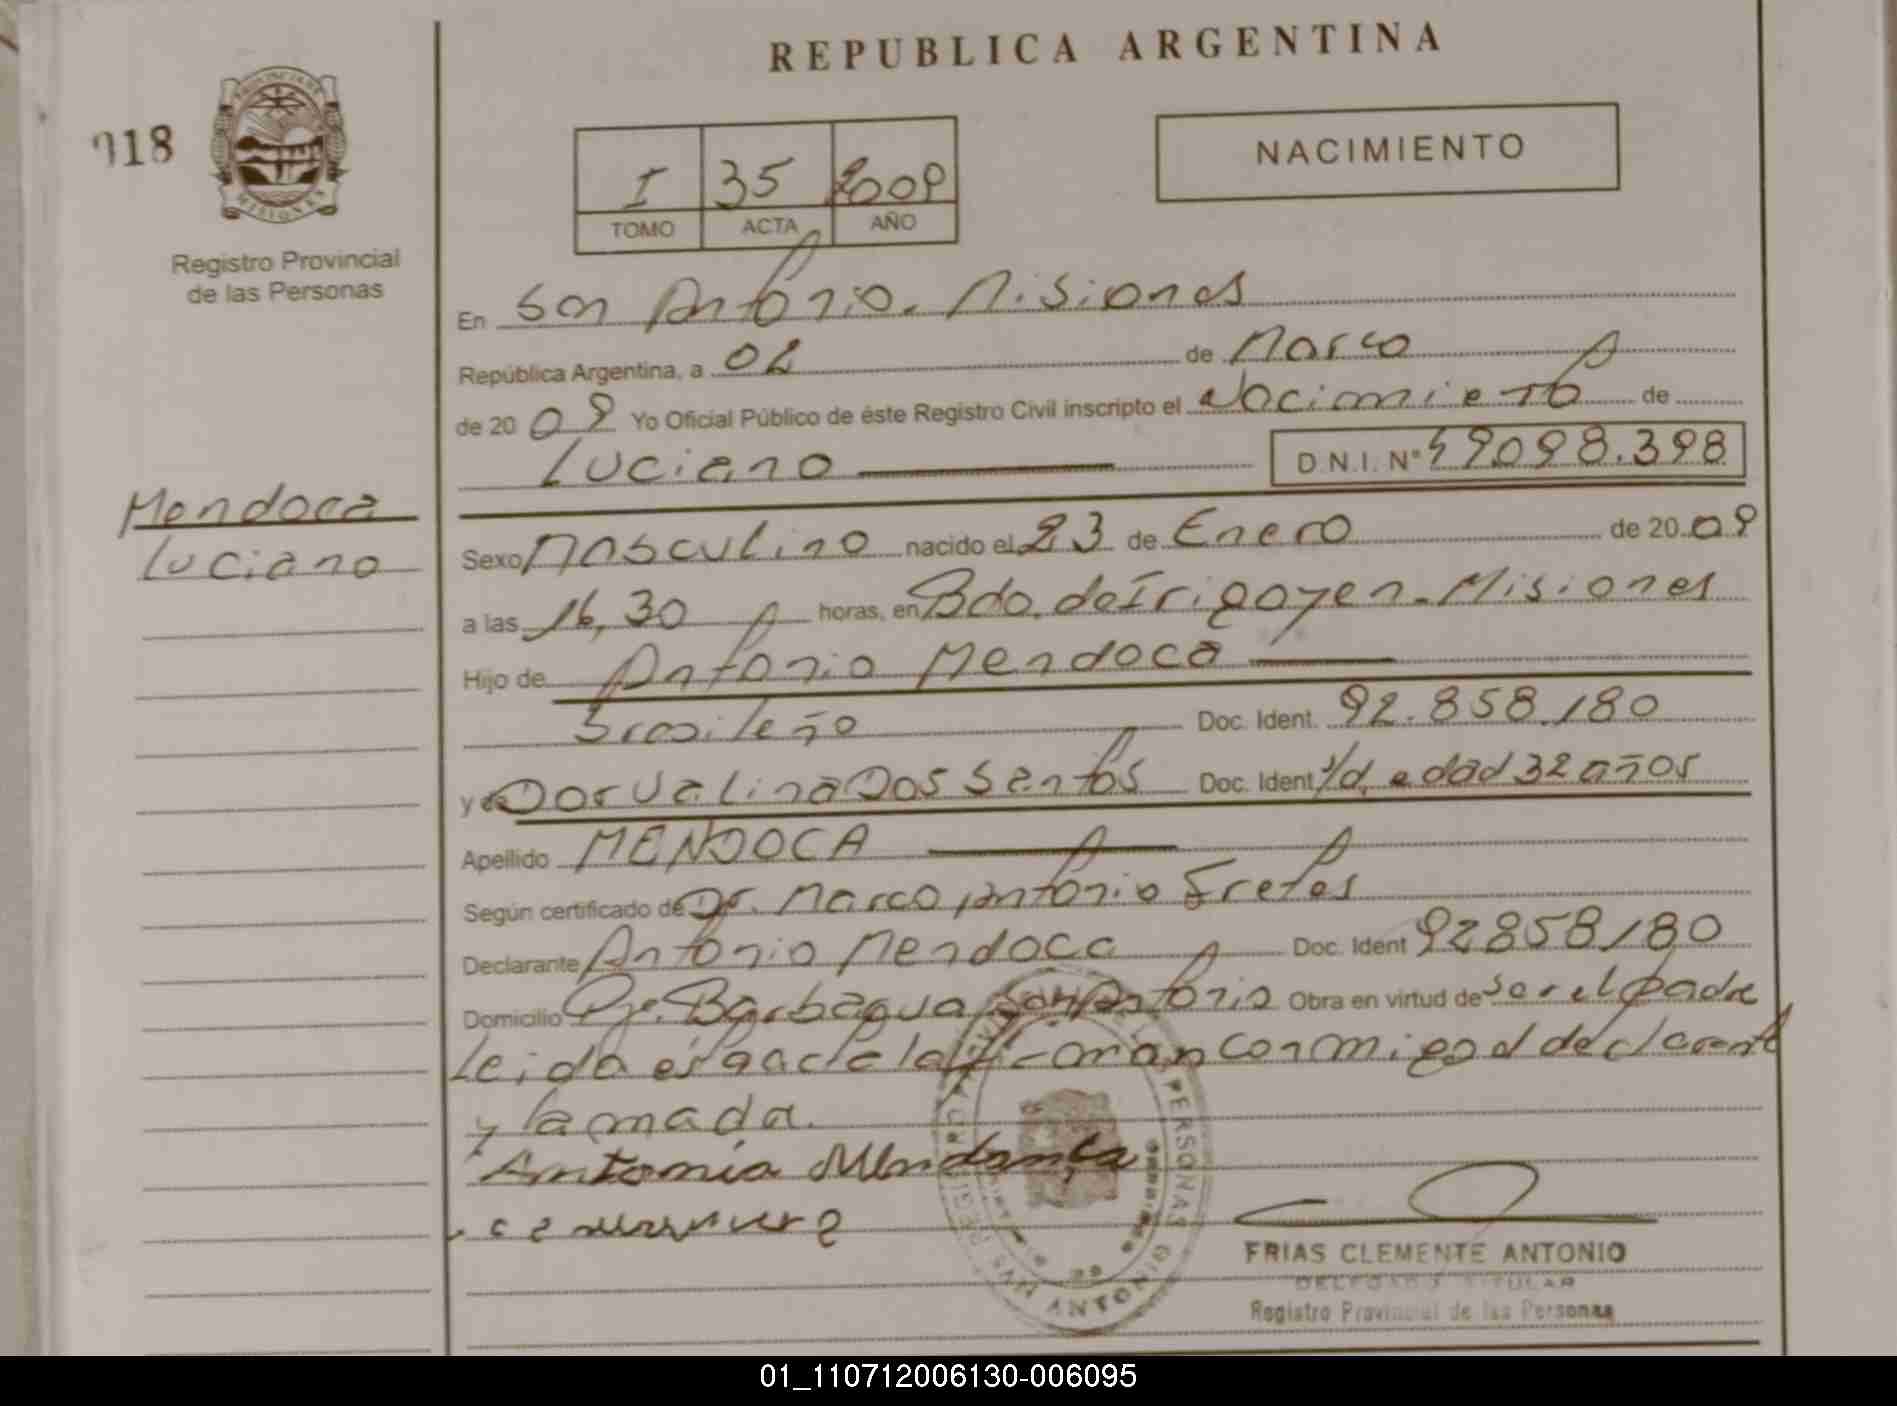 REPUBLICA ARGENTINA
018
PROVINCIA DE MISIONES
Registro Provincial
de las Personas
I 35 2009
TOMO ACTA AÑO
NACIMIENTO
En San Antonio. Misiones
República Argentina, a 02 de Marco
de 20 09 Yo Oficial Público de éste Registro Civil inscripto el Nacimiento de
Luciano D.N.I. Nº 49098.398
Mendoca
Luciano
Sexo Masculino nacido el 23 de Enero de 20 09
a las 16,30 horas, en Bdo. de Irigoyen - Misiones
Hijo de Antonio Mendoca
Brasileño Doc. Ident. 92.858.180
y de Dorvalina Dos Santos Doc. Ident s/d. edad 32 años
Apellido MENDOCA
Según certificado de Dr. Marco Antonio Fretes
Declarante Antonio Mendoca Doc. Ident 92858180
Domicilio Pje. Barbagua San Antonio Obra en virtud de ser el padre
Leida esta acta la firman conmigo el declarant
y la madre.
Antonia Mendonça
FRIAS CLEMENTE ANTONIO
DELEGADO TITULAR
Registro Provincial de las Personas
01_110712006130-006095